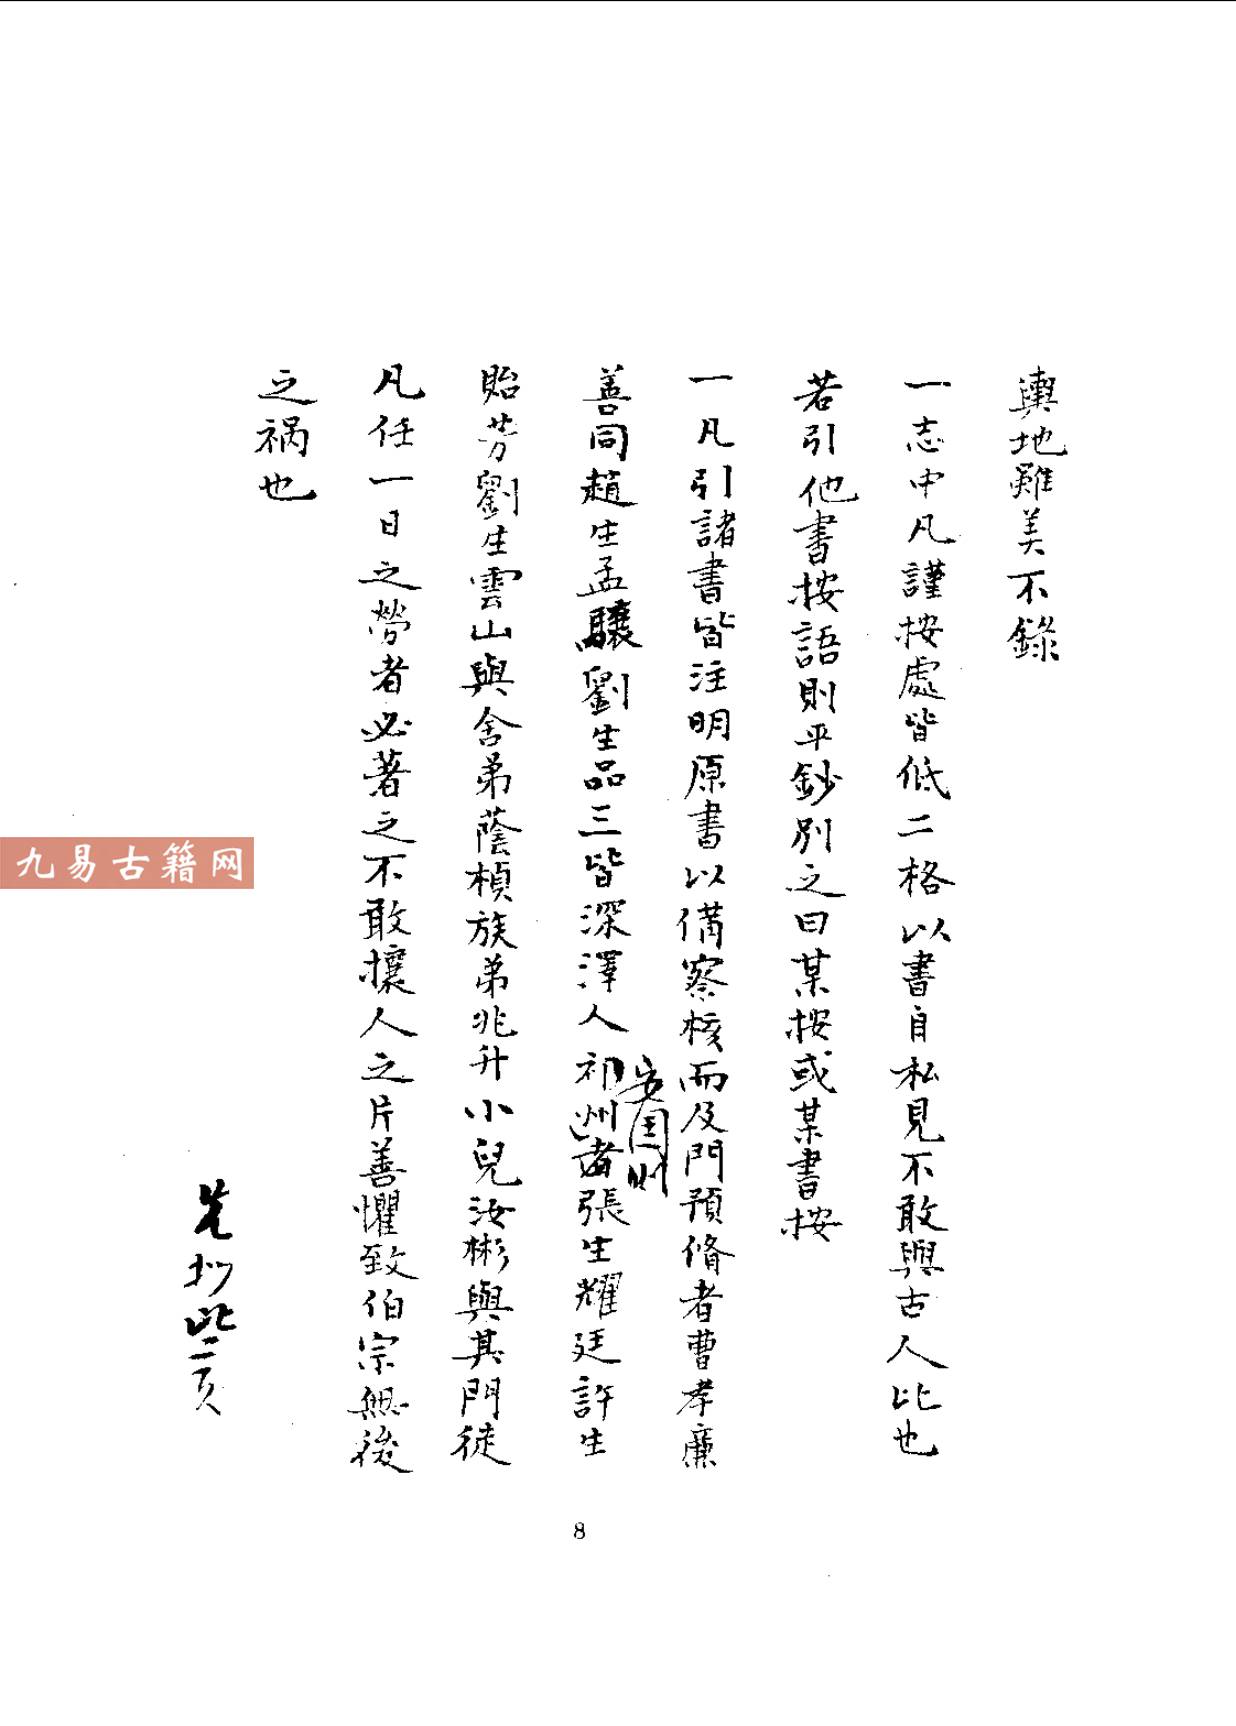 輿地雖美不錄
一志中凡謹按處皆低二格以書自私見不敢與古人比也
若引他書按語則平鈔別之曰某按或某書按
一凡引諸書皆注明原書以備察核而及門預脩者曹孝廉
善同趙生孟驤劉生品三皆深澤人祁州諸張生耀廷許生
安国則
貽芳劉生雲山與舍弟蔭楨族弟兆升小兒汝彬與其門徒
凡任一日之勞者必著之不敢攘人之片善懼致伯宗無後
之禍也
先抄此二頁
九易古籍网
8